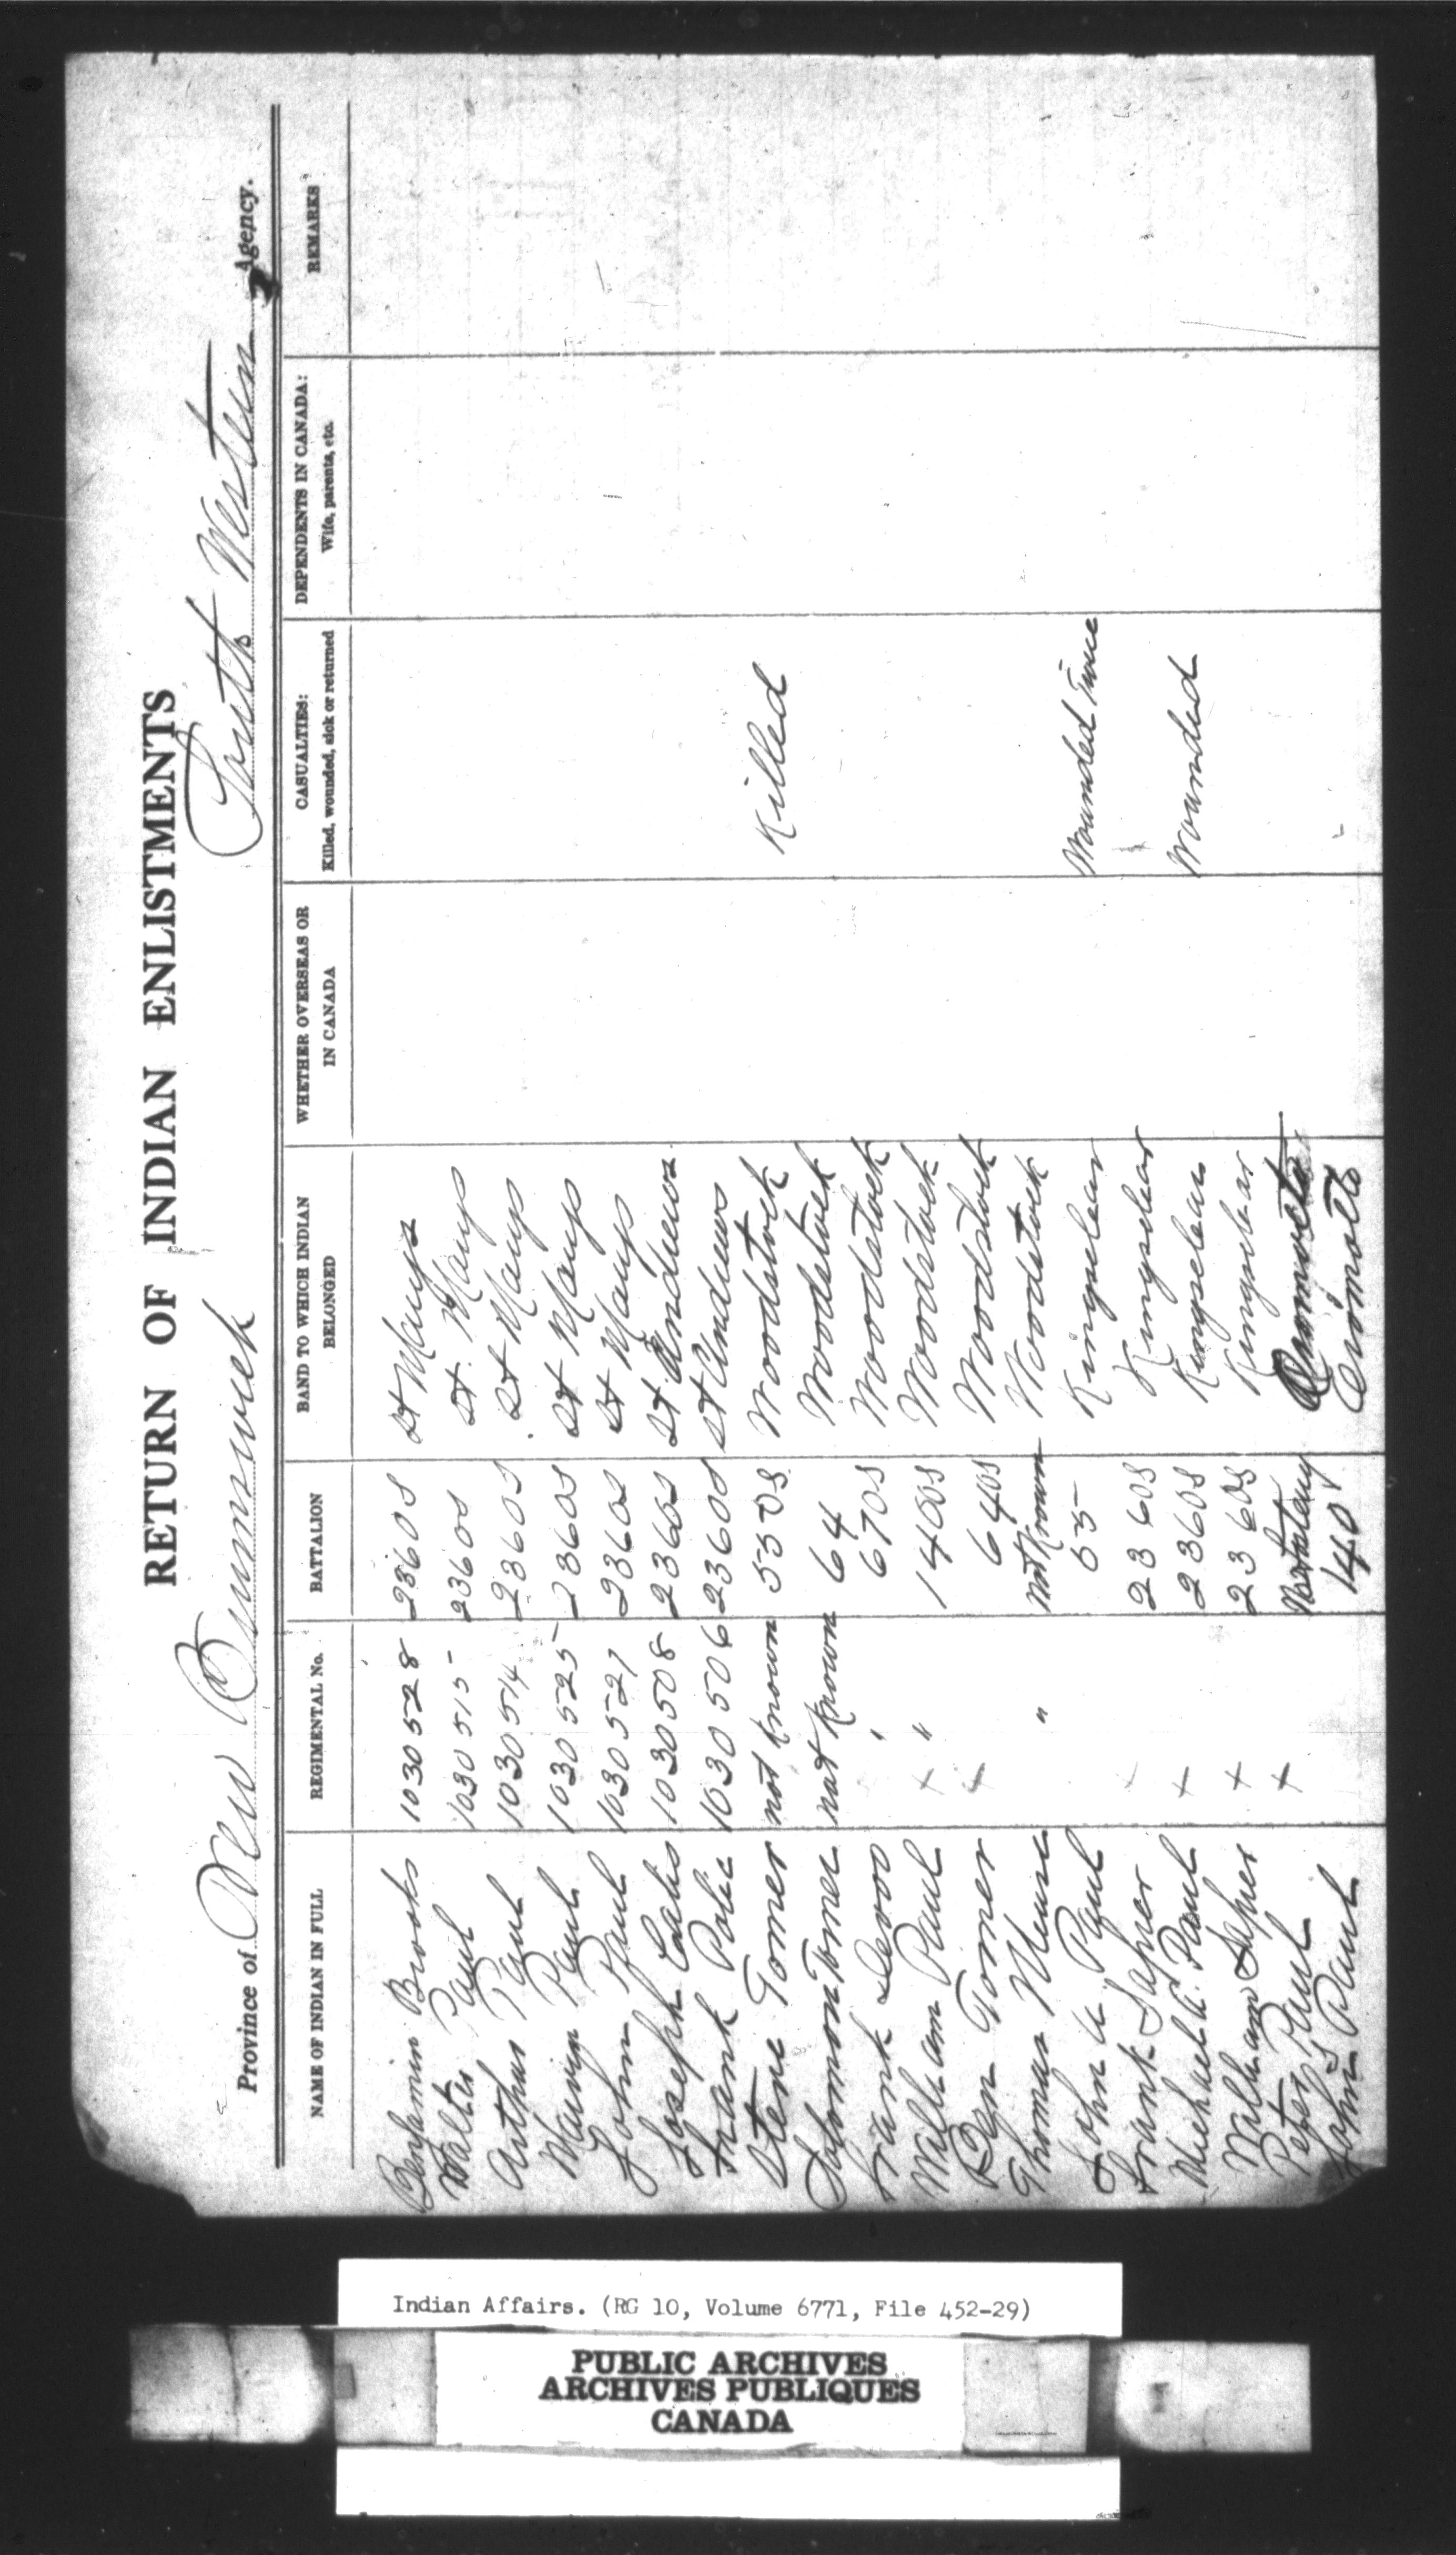 RETURN OF INDIAN ENLISTMENTS
Province of New Brunswick South Western Agency.
NAME OF INDIAN IN FULL REGIMENTAL No. BATTALION BAND TO WHICH INDIAN BELONGED WHETHER OVERSEAS OR IN CANADA CASUALTIES: Killed, wounded, sick or returned DEPENDENTS IN CANADA: Wife, parents, etc. REMARKS
Benjamin Brooks 1030528 236os St Marys
Walter Paul 1030515 236os St. Marys
Arthur Paul 1030514 236os St Marys
Marvin Paul 1030525 236os St Marys
John Paul 1030527 236os St Marys
Joseph 1030508 236os St Andrews
Frank 1030506 236os St Andrews
Tomer not known 55os Woodstock Killed
Solomon Tomer not known 64 Woodstock
Frank 67os Woodstock
William Paul + " 140os Woodstock
Ben Tomer + 64os Woodstock
Thomas " not known Woodstock
John A Paul 55 Kingsclear Wounded Twice
Frank + 236os Kingsclear
Michael A. Paul + 236os Kingsclear Wounded
William + 236os Kingsclear
Peter Paul + Oromocto
John Paul 140 Oromocto
Indian Affairs. (RG 10, Volume 6771, File 452-29)
PUBLIC ARCHIVES
ARCHIVES PUBLIQUES
CANADA